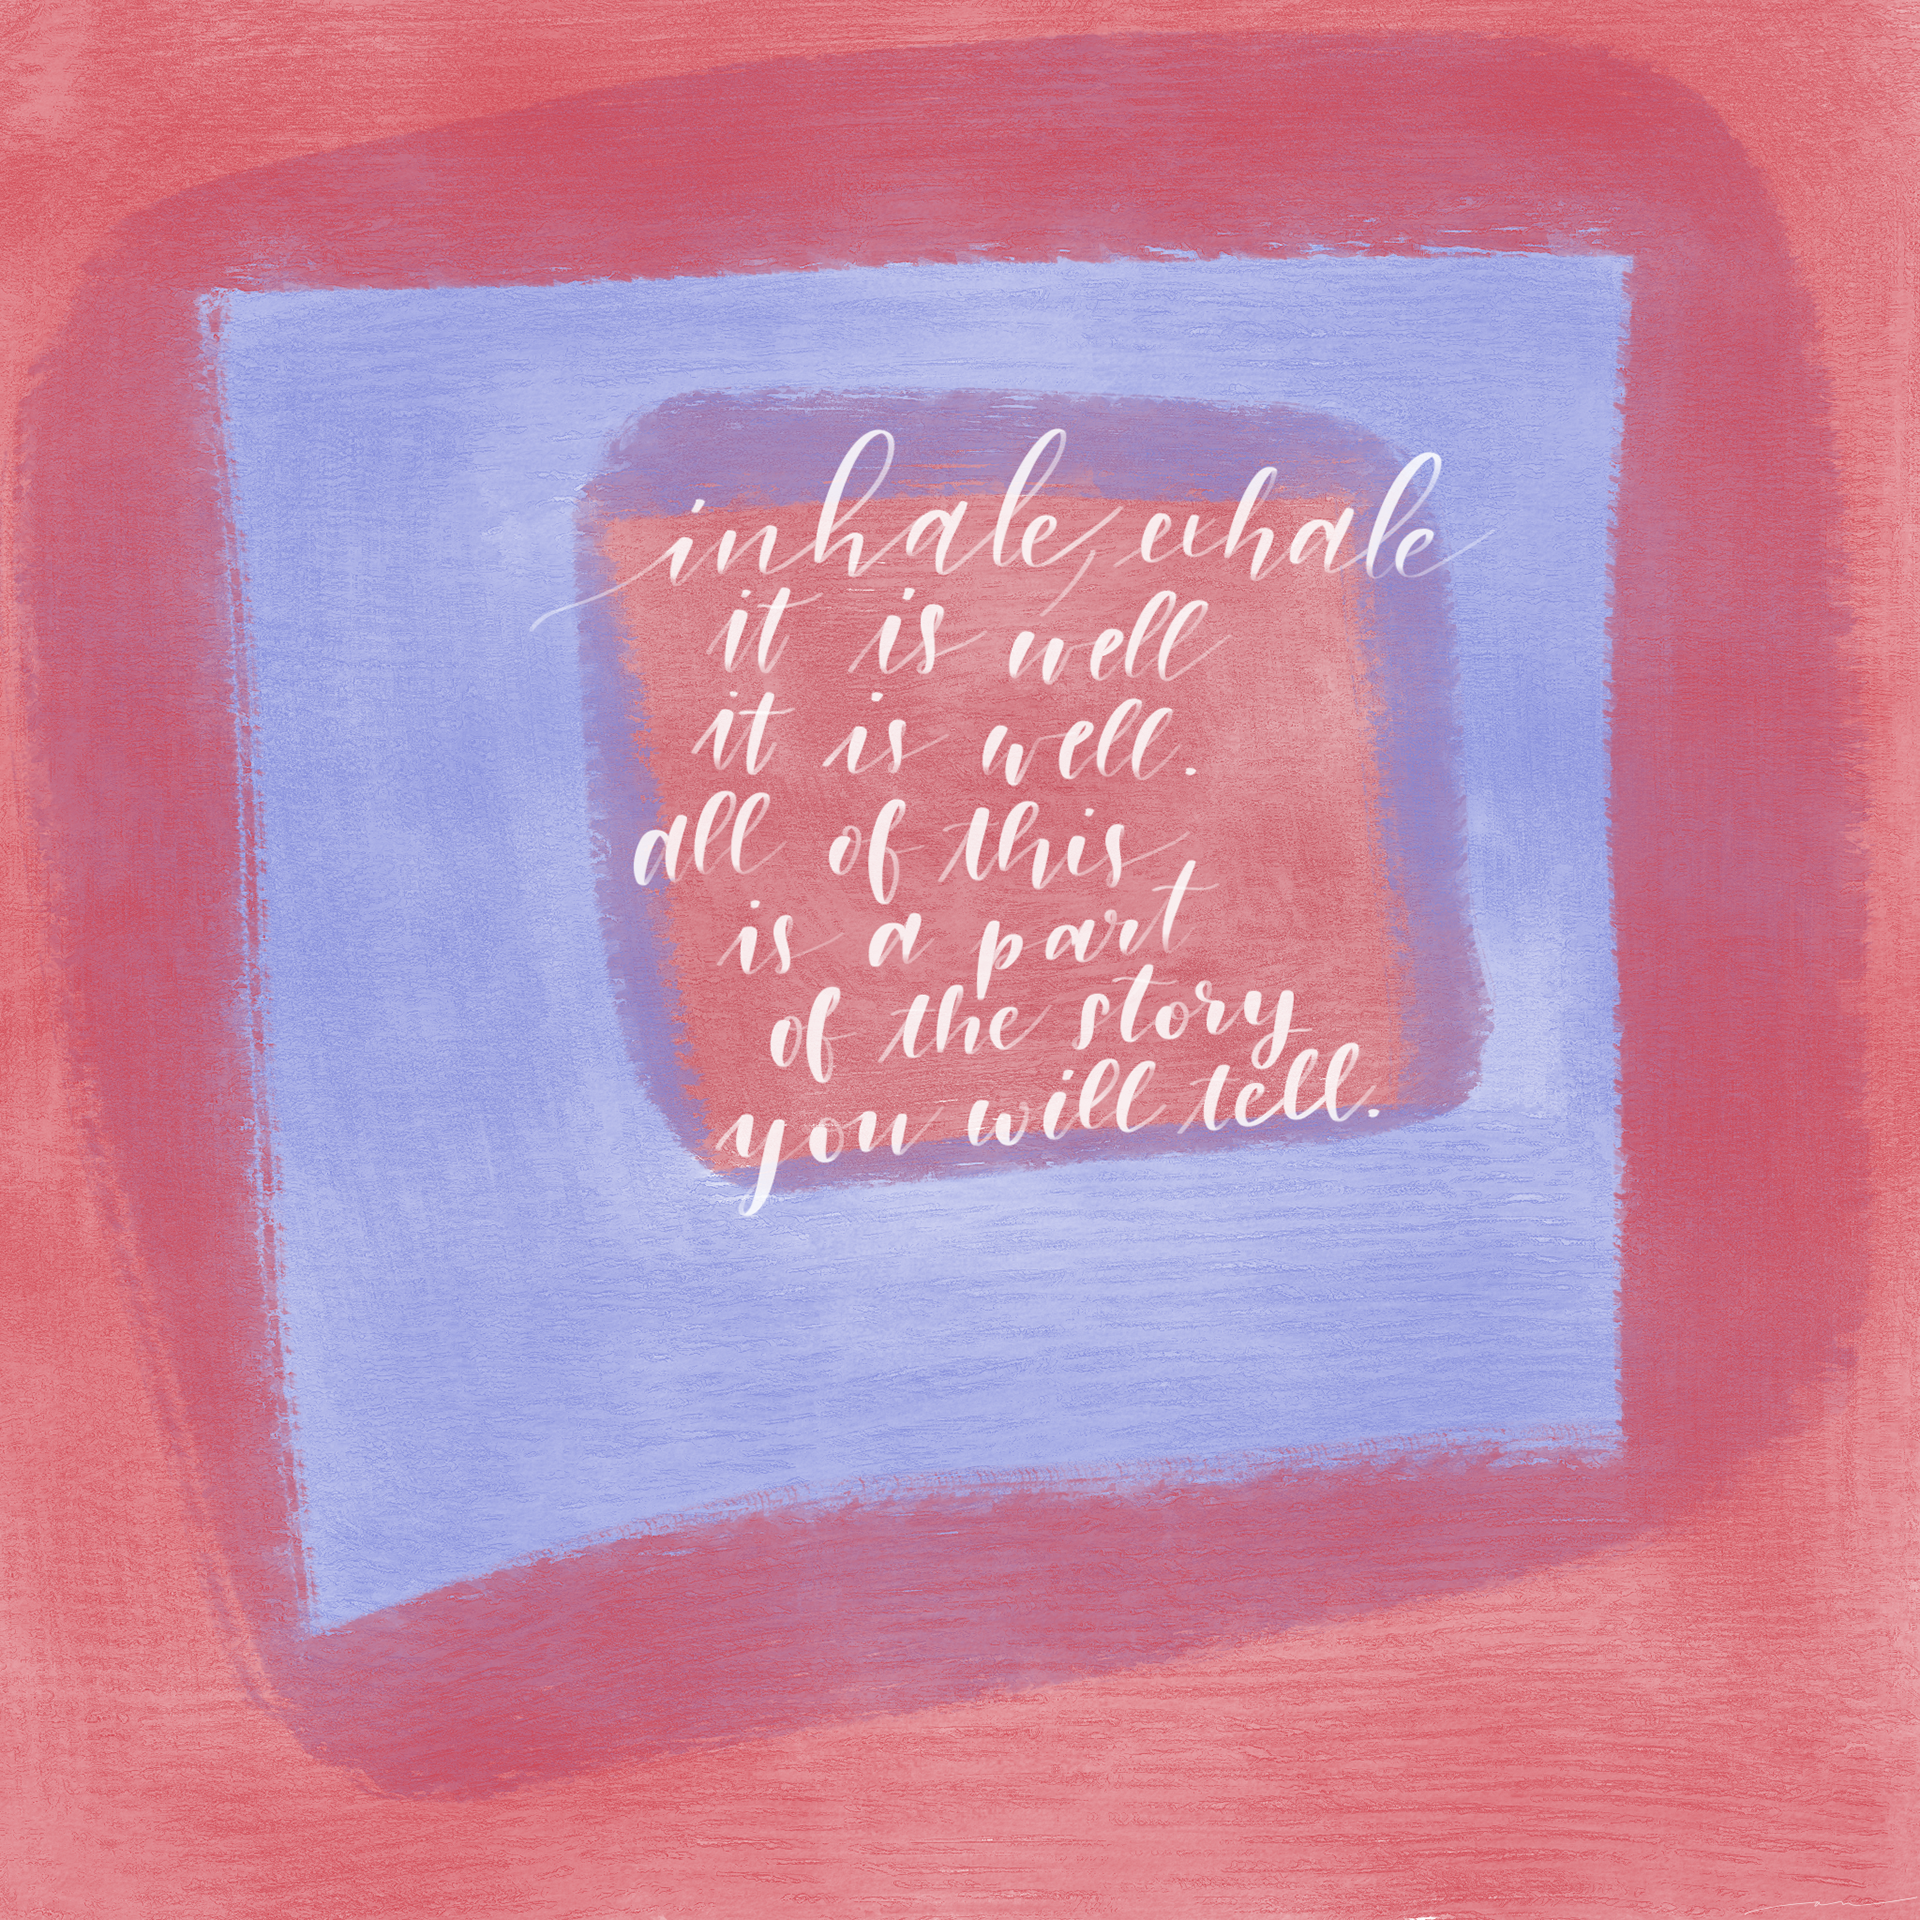 inhale, exhale
it is well
it is well.
all of this
is a part
of the story
you will tell.